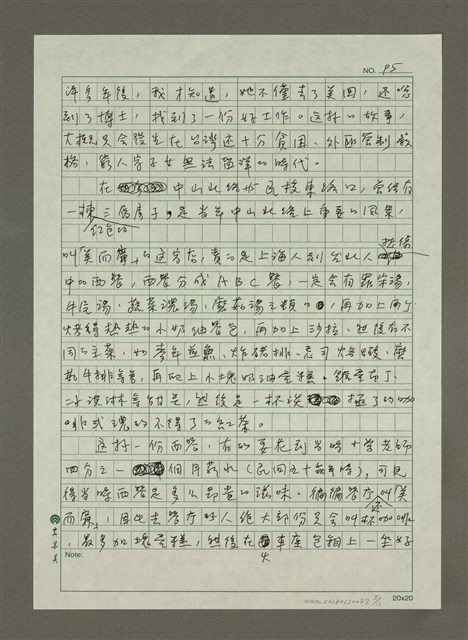 NO. 95
許多年後，我才知道，她不僅去了美國，還唸
到了博士，找到了一份好工作。這樣的故事，
大概只會發生在台灣還十分貧困、外匯管制嚴
格、窮人子女無法留洋的時代。
在中山北路與民族東路口，曾經有
一棟三層房子，是當年中山北路上重要的風景，
紅色的
叫「美而廉」的這家店，賣的是上海人到台北人
中的西餐，西餐分成ABC餐，一定會有羅宋湯、
牛尾湯、蔬菜濃湯、蘑菇湯之類的，再加上兩個
烤得熱熱的小奶油餐包，再加上沙拉，然後有不
同的主菜，如青年魚、炸豬排、忌司烤、蘑
菇牛排等等，再配上小塊奶油蛋糕。
冰淇淋等甜點，然後是一杯淡極了的咖
啡或塊的不得了的紅茶。
這樣一份西餐，有的要花到當時大學老師
四分之一個月薪水（民國五十幾年時），可見
得當時西餐是多麼昂貴的滋味。偏偏餐廳叫「美
而廉」，因此去餐廳的人絕大部份只會叫杯咖啡
還
，最多加塊蛋糕，然後在火車座包廂上一坐好
Note:
20x20